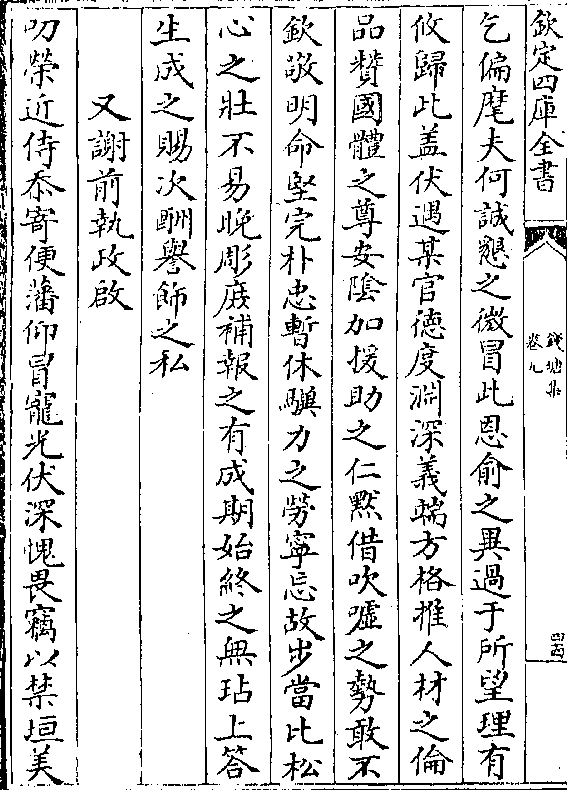 欽定四庫全書
錢塘集
卷九
四
乞偏麾夫何誠懇之微冒此恩俞之異過于所望理有
攸歸此盖伏遇某官德度淵深義端方格推人材之倫
品賛國體之尊安隂加援助之仁黙借吹噓之勢敢不
欽敬明命堅完朴忠暫休驥力之勞寧忘故歩當比松
心之壯不易晚彫庻補報之有成期始終之無玷上答
生成之賜次酬譽飾之私
又謝前執政啟
叨榮近侍忝寄便藩仰冒寵光伏深愧畏竊以禁垣美